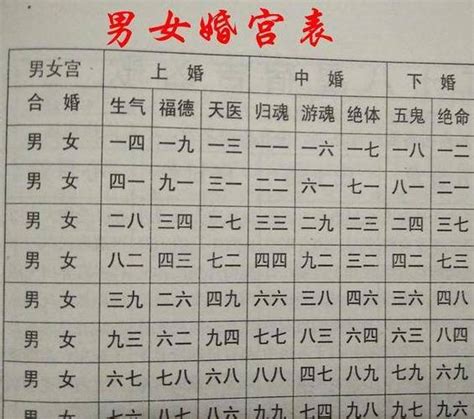 男女婚宫表
男女宫 上 婚 中 婚 下 婚
合 婚 生气 福德 天医 归魂 游魂 绝体 五鬼 绝命
男 女 一四 一九 一三 一一 一六 一七 一八 一二
男 女 四一 九一 三一 二二 六一 七一 八一 二一
男 女 二八 三四 二七 三三 二九 二三 二四 三七
男 女 八二 四三 七二 四四 九二 三二 四二 七三
男 女 三九 二六 四九 六六 三八 四六 三六 四八
男 女 九三 六二 九四 七七 八三 六四 六三 八四
男 女 六七 七八 六八 八八 四七 八九 七九 六九
男 女 七六 八七 八六 九九 七四 九八 九七 九六